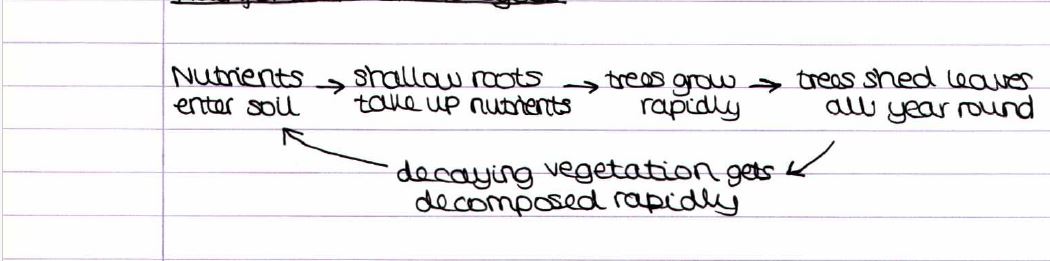 Nutrients → shallow roots → trees grow → trees shed leaves
enter soil take up nutrients rapidly all year round
decaying vegetation gets
decomposed rapidly